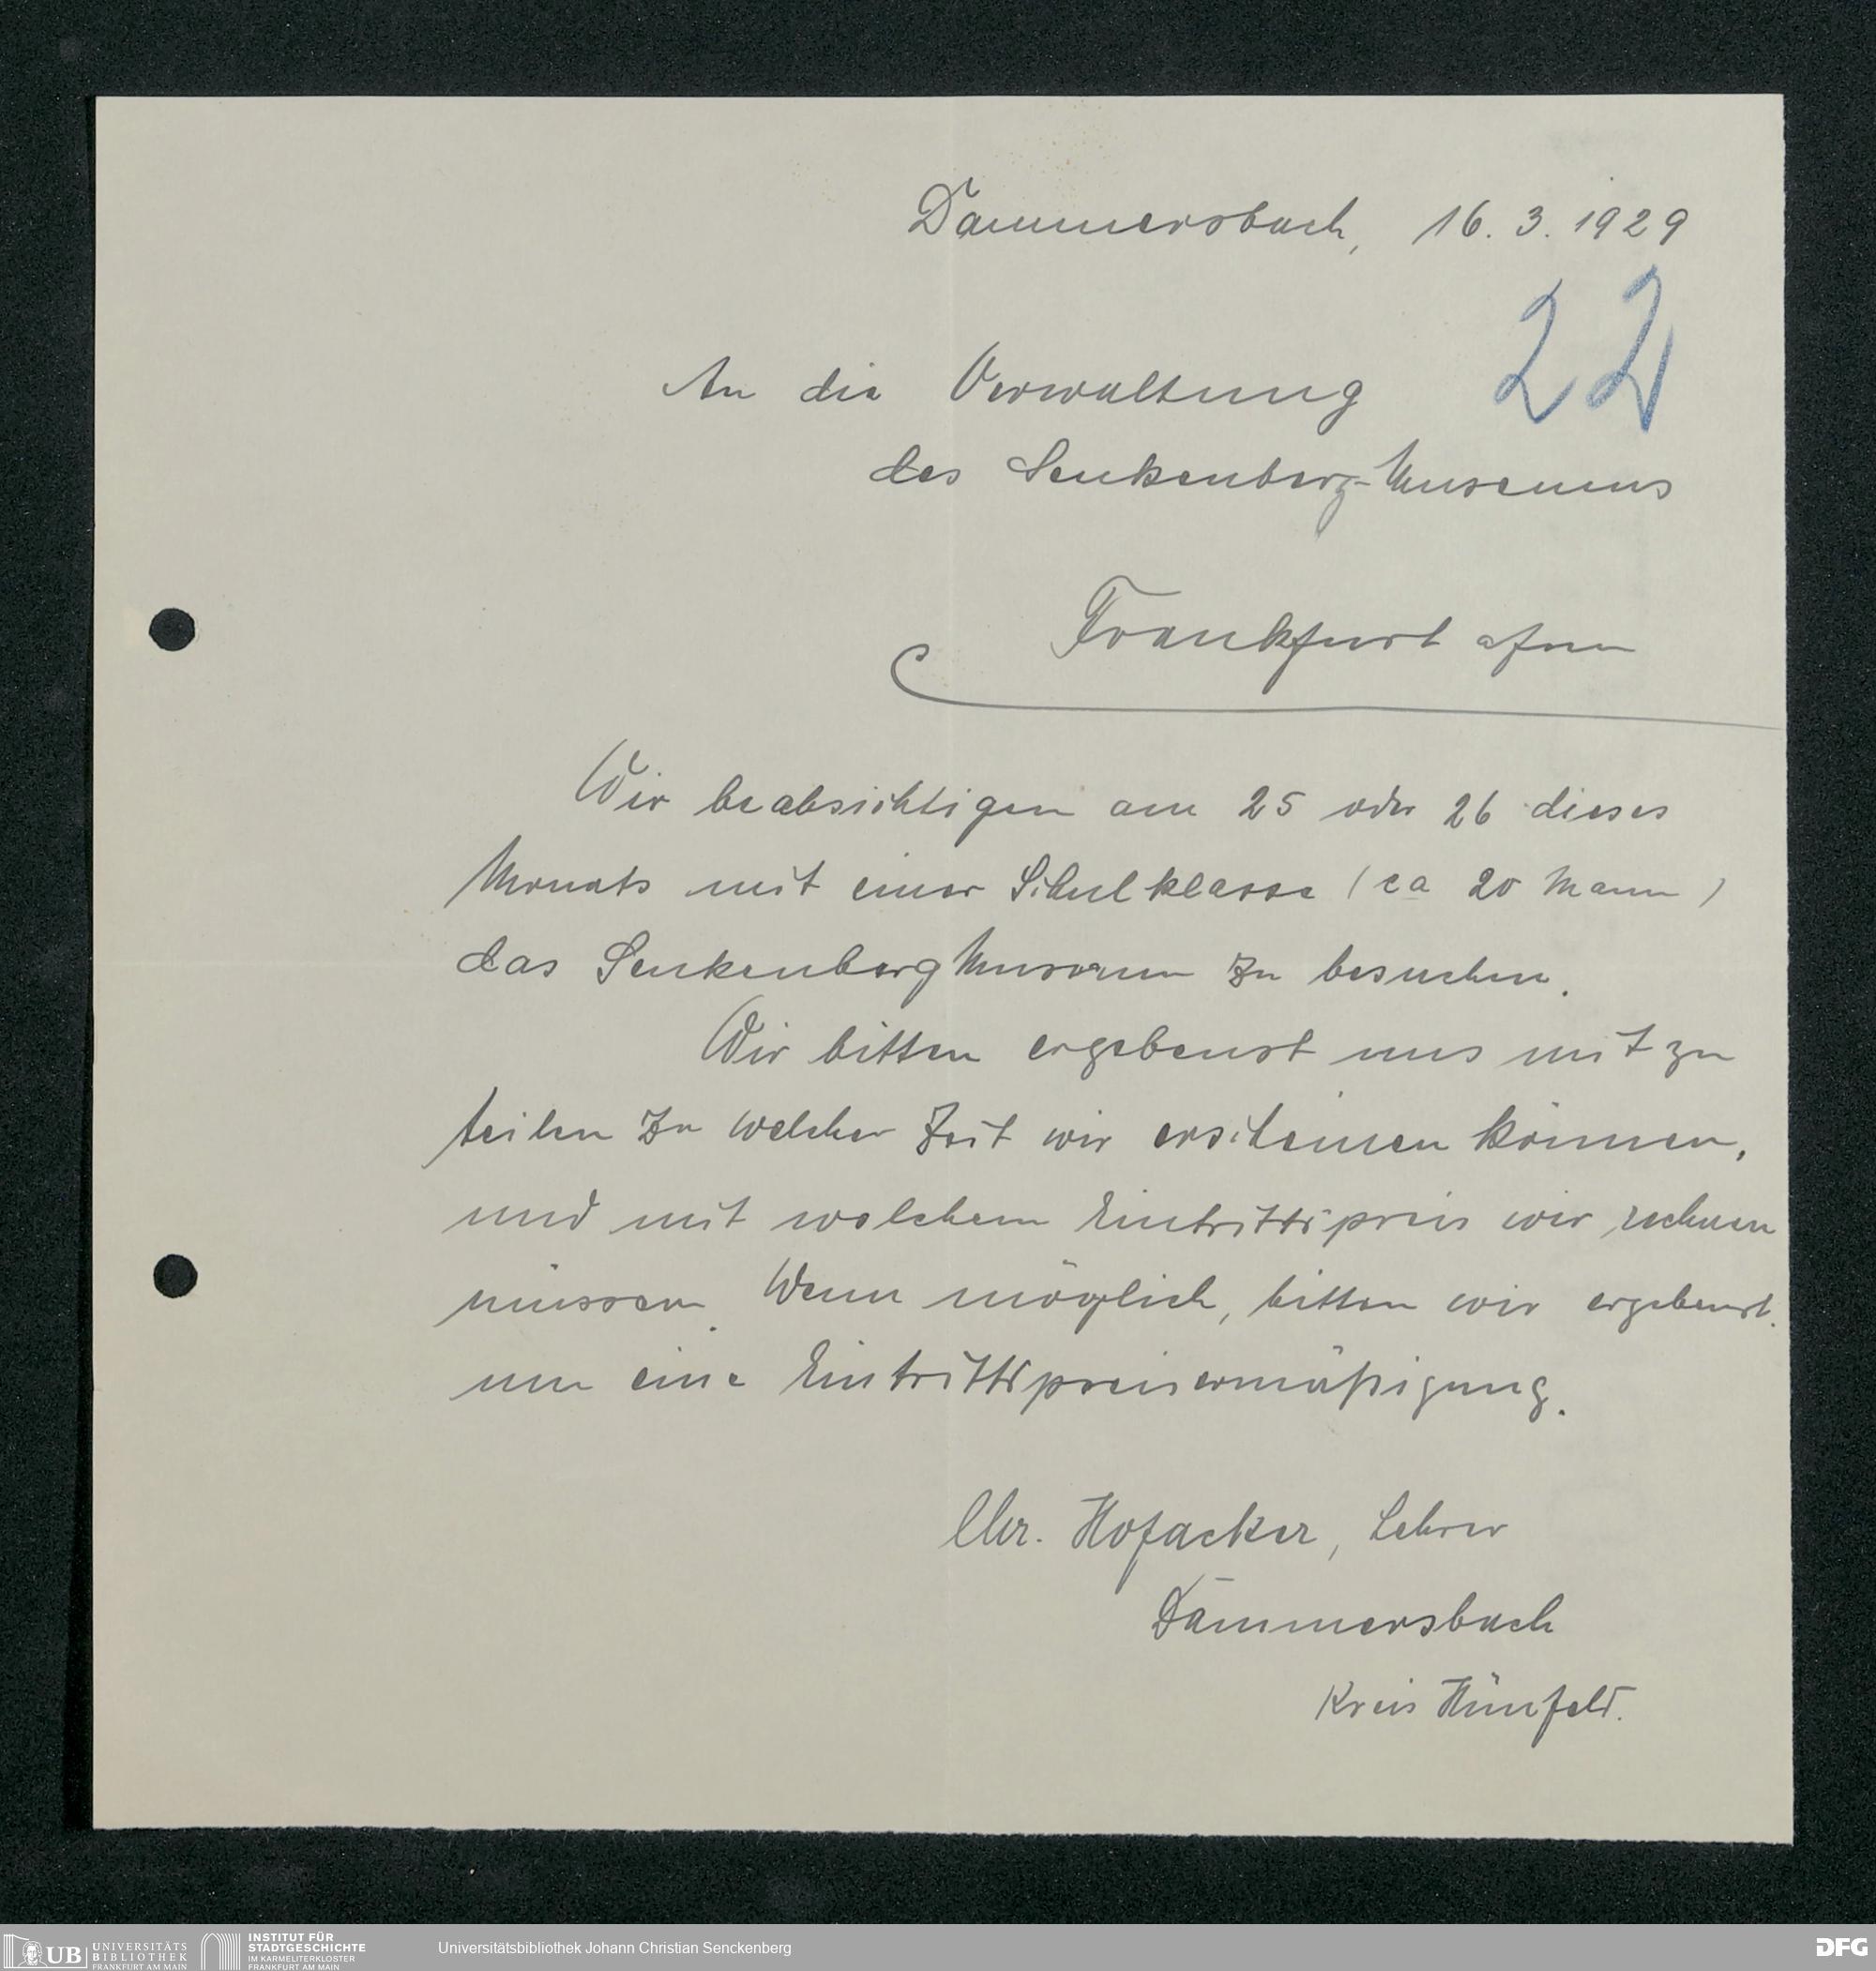 Dammersbach, 16. 3. 1929
22
An die Verwaltung
des Senkenberg-Museums
Frankfurt a/m
Wir beabsichtigen am 25 oder 26 dieses
Monats mit einer Schulklasse (ca 20 Mann)
das Senkenberg Museum zu besuchen.
Wir bitten ergebenst uns mit zu
teilen zu welcher Zeit wir erscheinen können,
und mit welchem Eintrittspreis wir rechnen
müssen. Wenn möglich, bitten wir ergebenst.
um eine Eintrittspreisermäßigung.
Chr. Hofacker, Lehrer
Dammersbach
Kreis Hünfeld.
UB UNIVERSITÄTS
BIBLIOTHEK
FRANKFURT AM MAIN
INSTITUT FÜR
STADTGESCHICHTE
IM KARMELITERKLOSTER
FRANKFURT AM MAIN
Universitätsbibliothek Johann Christian Senckenberg
DFG